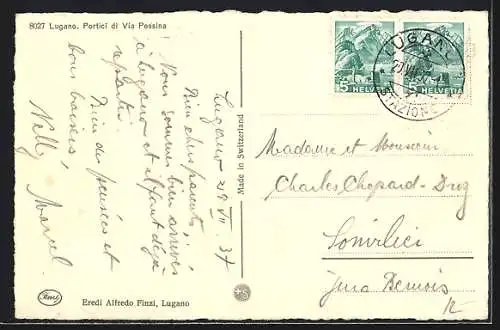 8027 Lugano. Portici di Via Pessina
Lugano 29 VII 37
Bien chers parents
Nous sommes bien arrivés
à Lugano et il faut déjà
repartir.
Bien des pensées et
bons baisers
Nelly Marcel
Made in Switzerland
Eredi Alfredo Finzi, Lugano
5 HELVETIA
HELVETIA
LUGANO
STAZIONE
Madame et Monsieur
Charles Chopard-Droz
Sonvilier
Jura Bernois